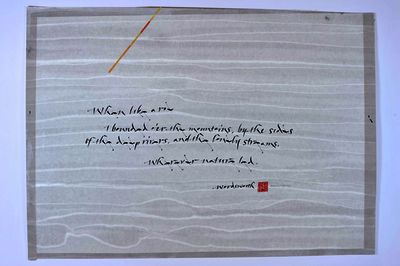 When like a roe
I bounded o'er the mountains, by the sides
of the deep rivers, and the lonely streams.
Wherever nature led.
wordsworth